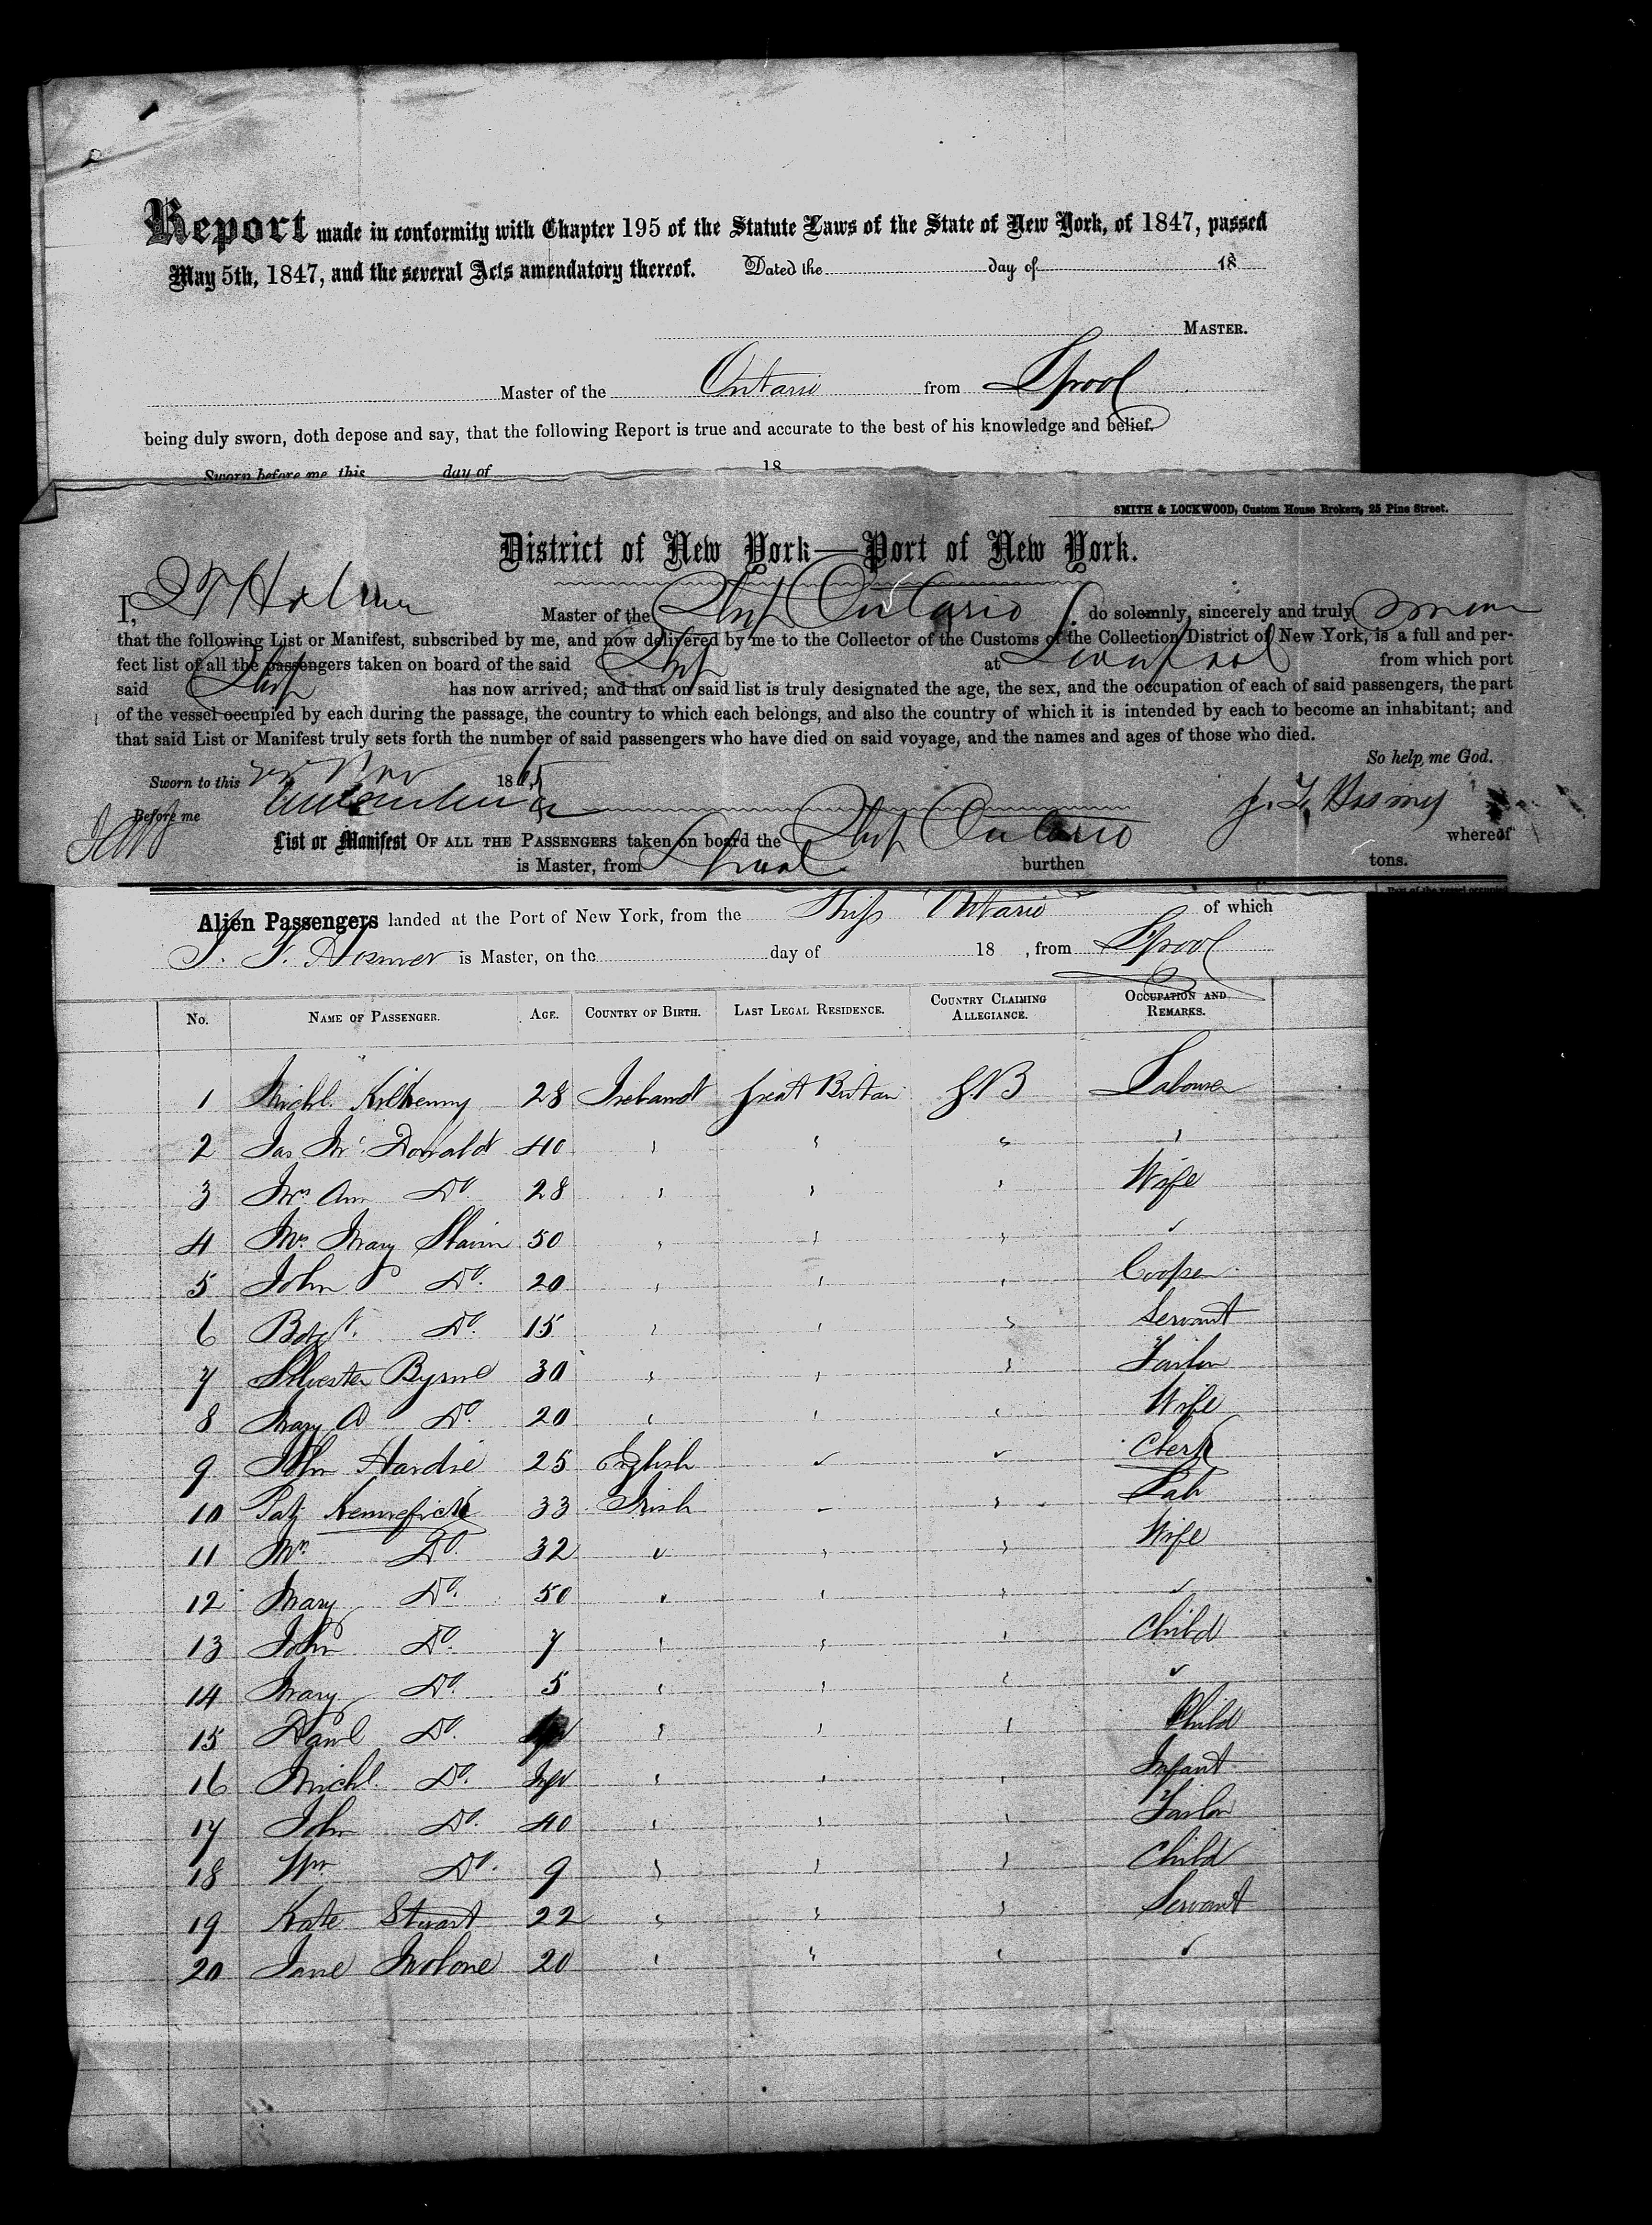 Report made in conformity with Chapter 195 of the Statute Laws of the State of New York, of 1847, passed
May 5th, 1847, and the several Acts amendatory thereof. Dated the day of 18
MASTER.
Master of the Ontario from Lpool
being duly sworn, doth depose and say, that the following Report is true and accurate to the best of his knowledge and belief.
Sworn before me this day of 18
SMITH & LOCKWOOD, Custom House Brokers, 25 Pine Street.
District of New York—Port of New York.
I, Master of the Ship Ontario do solemnly, sincerely and truly swear
that the following List or Manifest, subscribed by me, and now delivered by me to the Collector of the Customs of the Collection District of New York, is a full and per-
fect list of all the passengers taken on board of the said Ship at Liverpool from which port
said Ship has now arrived; and that on said list is truly designated the age, the sex, and the occupation of each of said passengers, the part
of the vessel occupied by each during the passage, the country to which each belongs, and also the country of which it is intended by each to become an inhabitant; and
that said List or Manifest truly sets forth the number of said passengers who have died on said voyage, and the names and ages of those who died.
So help me God.
Sworn to this Nov 1865
Before me J. T. Hosmer
List or Manifest OF ALL THE PASSENGERS taken on board the Ship Ontario whereof
is Master, from Lpool burthen tons.
Alien Passengers landed at the Port of New York, from the Ship Ontario of which
J. T. Hosmer is Master, on the day of 18 , from Lpool
No. NAME OF PASSENGER. AGE. COUNTRY OF BIRTH. LAST LEGAL RESIDENCE. COUNTRY CLAIMING ALLEGIANCE. OCCUPATION AND REMARKS.
1 Michl. Kilkenny 28 Ireland Great Britain GB Labourer
2 Jas Mc Donald 40 " " " "
3 Mrs Ann Do 28 " " " Wife
4 Mrs Mary 50 " " " "
5 John Do. 20 " " " Cooper
6 Do. 15 " " " Servant
7 Silvester Byrne 30 " " " Tailor
8 Mary A Do. 20 " " " Wife
9 John Hardie 25 English " " Clerk
10 Pat Kennefick 33 Irish " " Lab
11 Mrs Do. 32 " " " Wife
12 Mary Do. 50 " " " "
13 John Do. 7 " " " Child
14 Mary Do. 5 " " " "
15 Danl Do. " " " Child
16 Michl. Do. Inft " " " Infant
17 John Do. 40 " " " Tailor
18 Wm Do. 9 " " " Child
19 Kate Stuart 22 " " " Servant
20 Jane Molone 20 " " " "